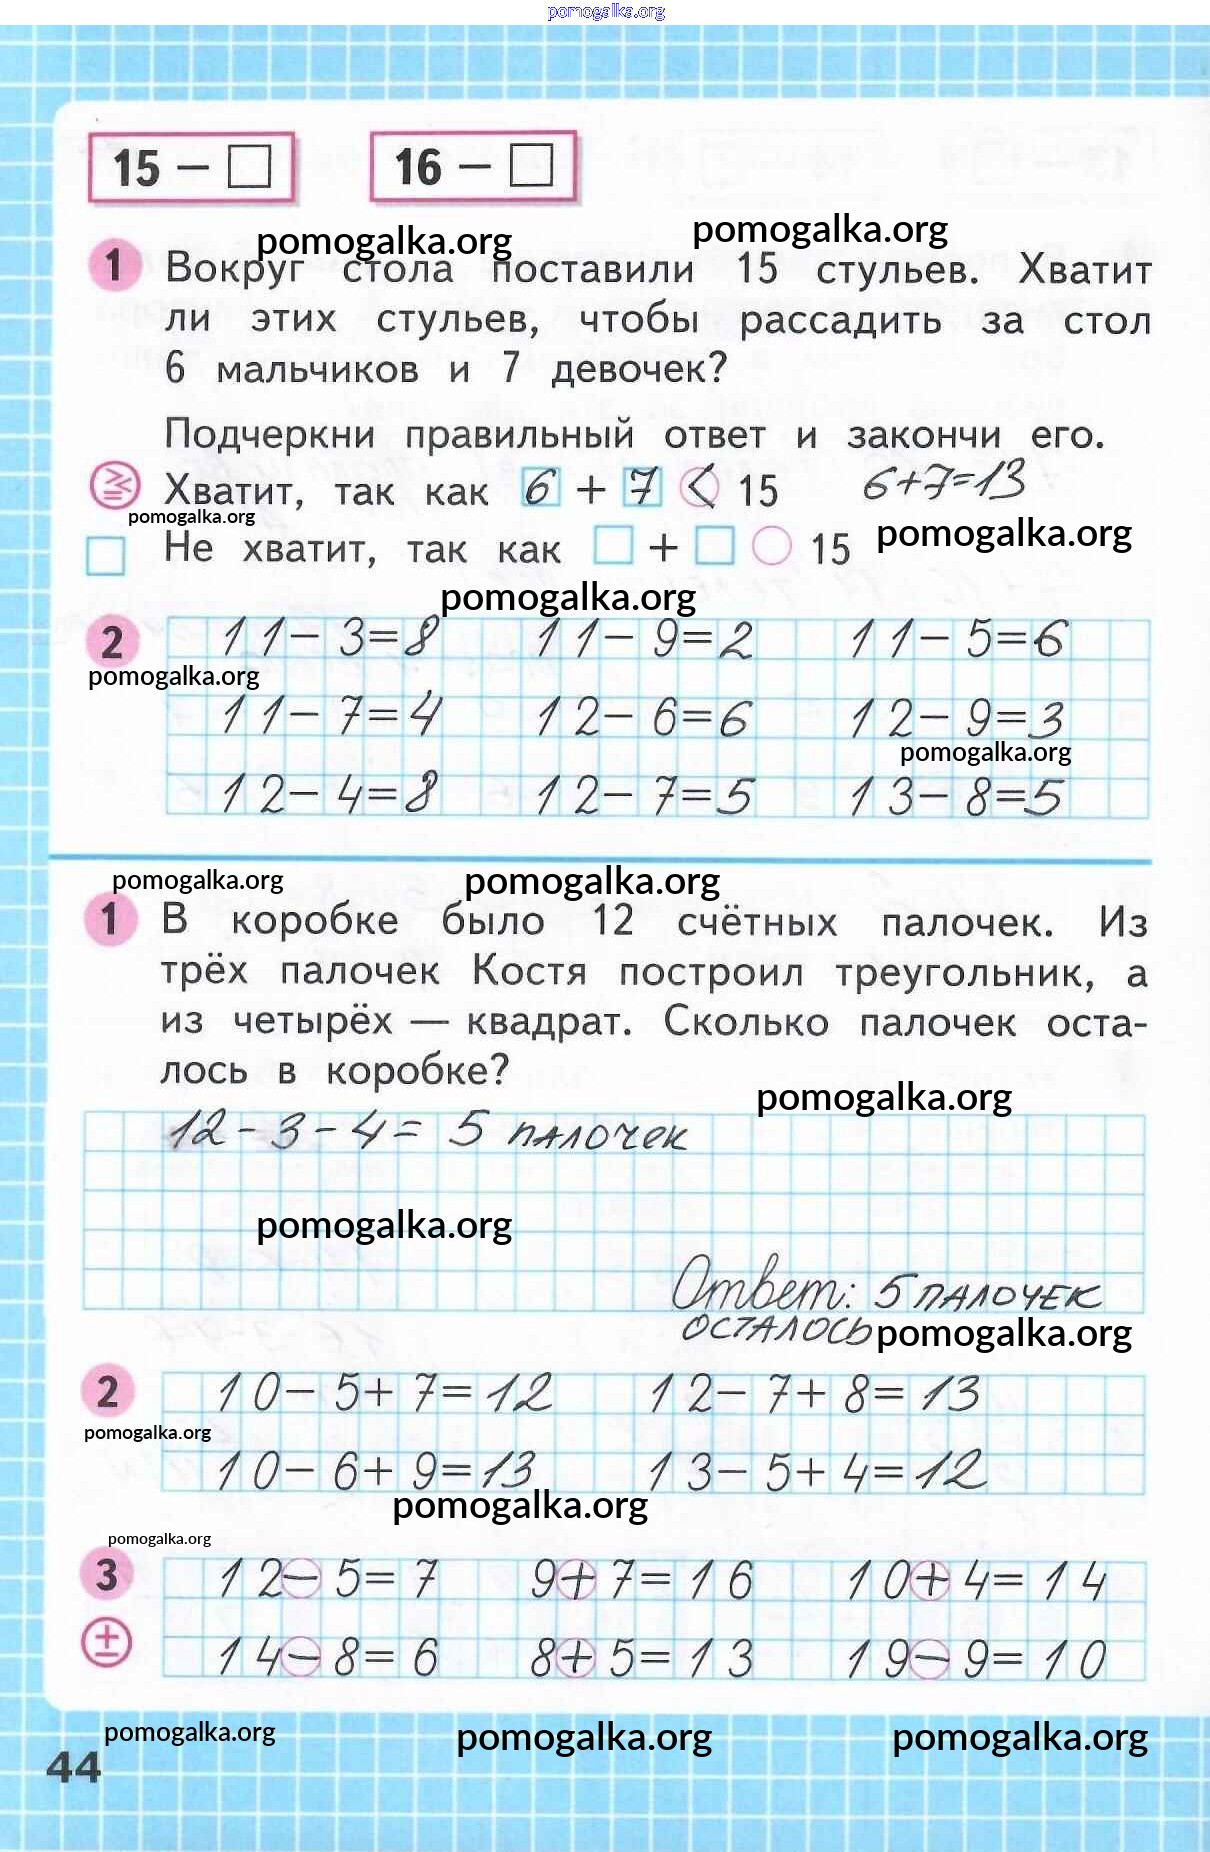 pomogalka.org
15 − □ 16 − □
pomogalka.org pomogalka.org
1 Вокруг стола поставили 15 стульев. Хватит
ли этих стульев, чтобы рассадить за стол
6 мальчиков и 7 девочек?
Подчеркни правильный ответ и закончи его.
Хватит, так как 6 + 7 < 15 6+7=13
pomogalka.org pomogalka.org
Не хватит, так как □ + □ ○ 15
pomogalka.org
2 11−3=8 11−9=2 11−5=6
pomogalka.org
11−7=4 12−6=6 12−9=3
pomogalka.org
12−4=8 12−7=5 13−8=5
pomogalka.org pomogalka.org
1 В коробке было 12 счётных палочек. Из
трёх палочек Костя построил треугольник, а
из четырёх — квадрат. Сколько палочек оста-
лось в коробке?
pomogalka.org
12−3−4= 5 палочек
pomogalka.org
Ответ: 5 палочек
осталось pomogalka.org
2 10−5+7=12 12−7+8=13
pomogalka.org
10−6+9=13 13−5+4=12
pomogalka.org
pomogalka.org
3 12−5=7 9+7=16 10+4=14
±
14−8=6 8+5=13 19−9=10
pomogalka.org pomogalka.org pomogalka.org
44